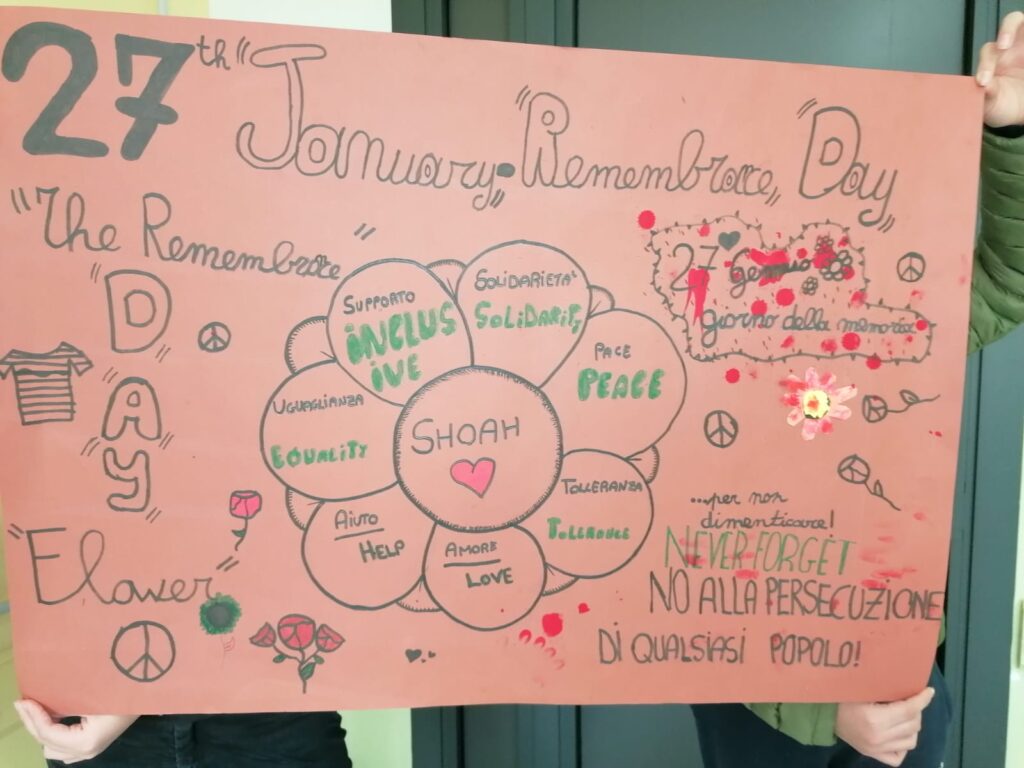 27th "January, "Remembrace" "Day"
"The Remembrace"
"D
A
Y"
"Flower"
27 Gennaio
giorno della memoria
SUPPORTO
INCLUS
IVE
SOLIDARIETA'
SOLIDARITY
PACE
PEACE
UGUAGLIANZA
EQUALITY
SHOAH
TOLLERANZA
TOLERANCE
AIUTO
HELP
AMORE
LOVE
...per non
dimenticare!
NEVER FORGET
NO ALLA PERSECUZIONE
DI QUALSIASI POPOLO!